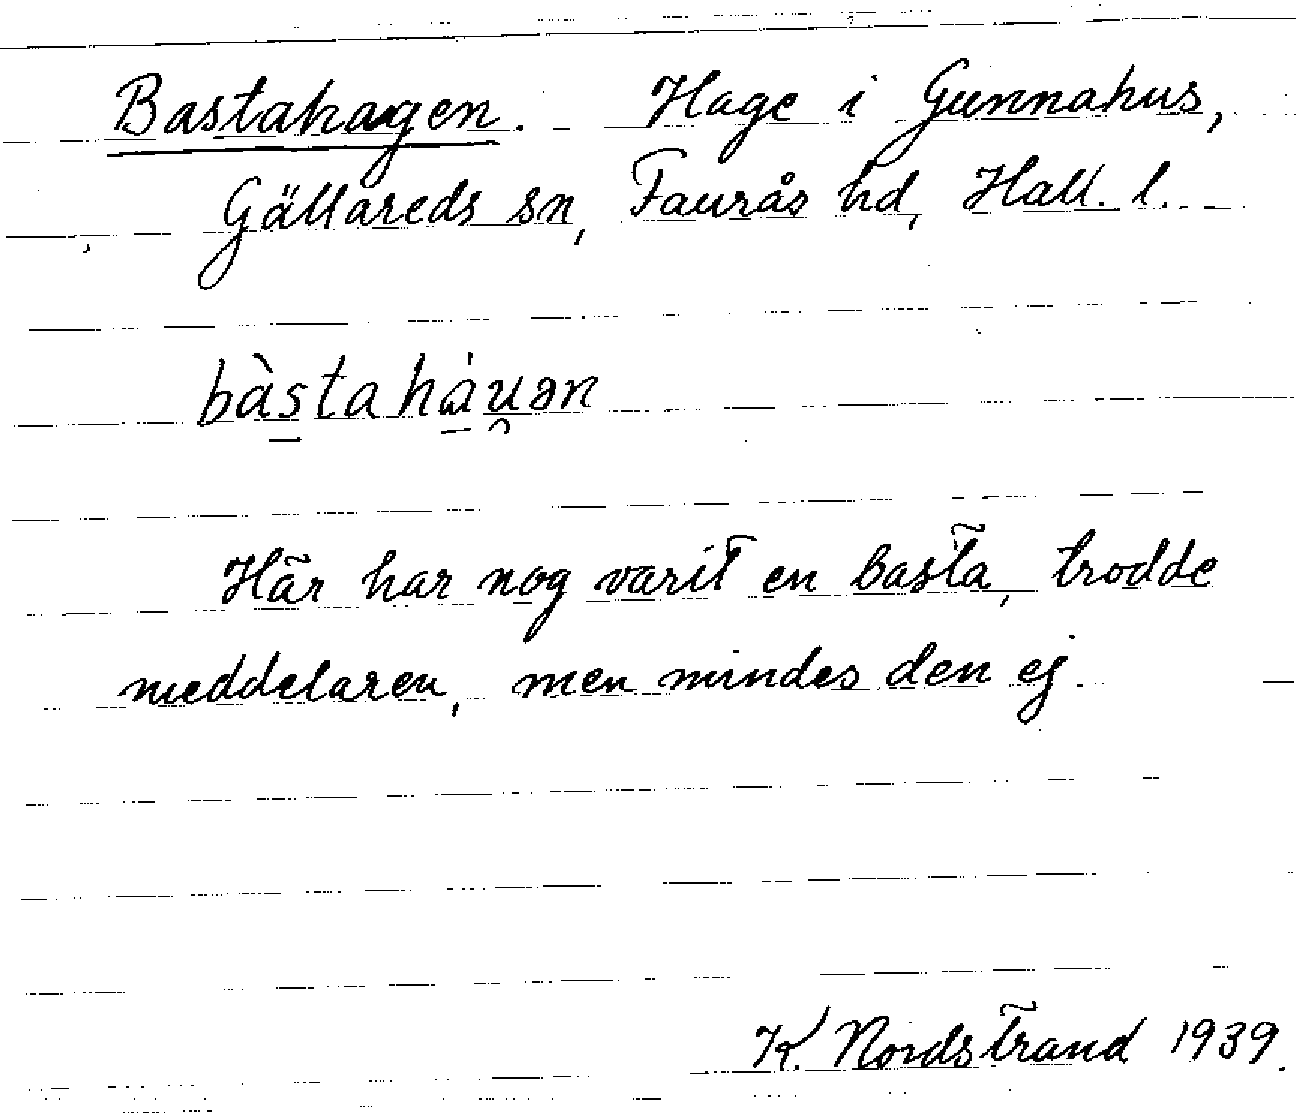 Bastahagen. Hage i Gunnahus,
Gällareds sn, Faurås hd, Hall. l.
bàstahàu̯ən
Här har nog varit en basta, trodde
meddelaren, men mindes den ej.
K. Nordstrand 1939.